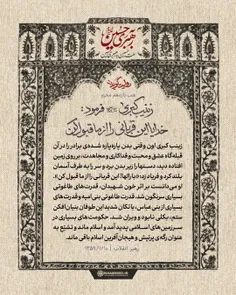 شب یازدهم محرم
زینب کبری فرمود:
خدایا این قربانی را از ما قبول کن
زینب کبری اون وقتی بدن پاره‌پاره شده‌ی برادر را در آن
قتلگاه عشق و محبت و فداکاری و مجاهدت، بر روی زمین
افتاده دید، دستها را زیر بدن برد و سر را به طرف آسمان
بلند کرد و فریاد زد: «بارالها! این قربانی را از ما قبول کن».
او می‌دانست بر اثر خون شهیدان، قدرت‌های طاغوتی
بسیاری سرنگون شد. قدرت طاغوتی بنی امیه و قدرت‌های
بسیاری از بنی عباس، با تکان شدید این طوفان بنیان‌افکن
ستم، بکلی نابود و ویران شد. حکومت‌های بسیاری در
سرزمین‌های اسلامی پدید آمد و اسلام ماند و تشیّع به
عنوان رگه‌ی پرتپش و هیجان‌آفرین اسلام باقی ماند.